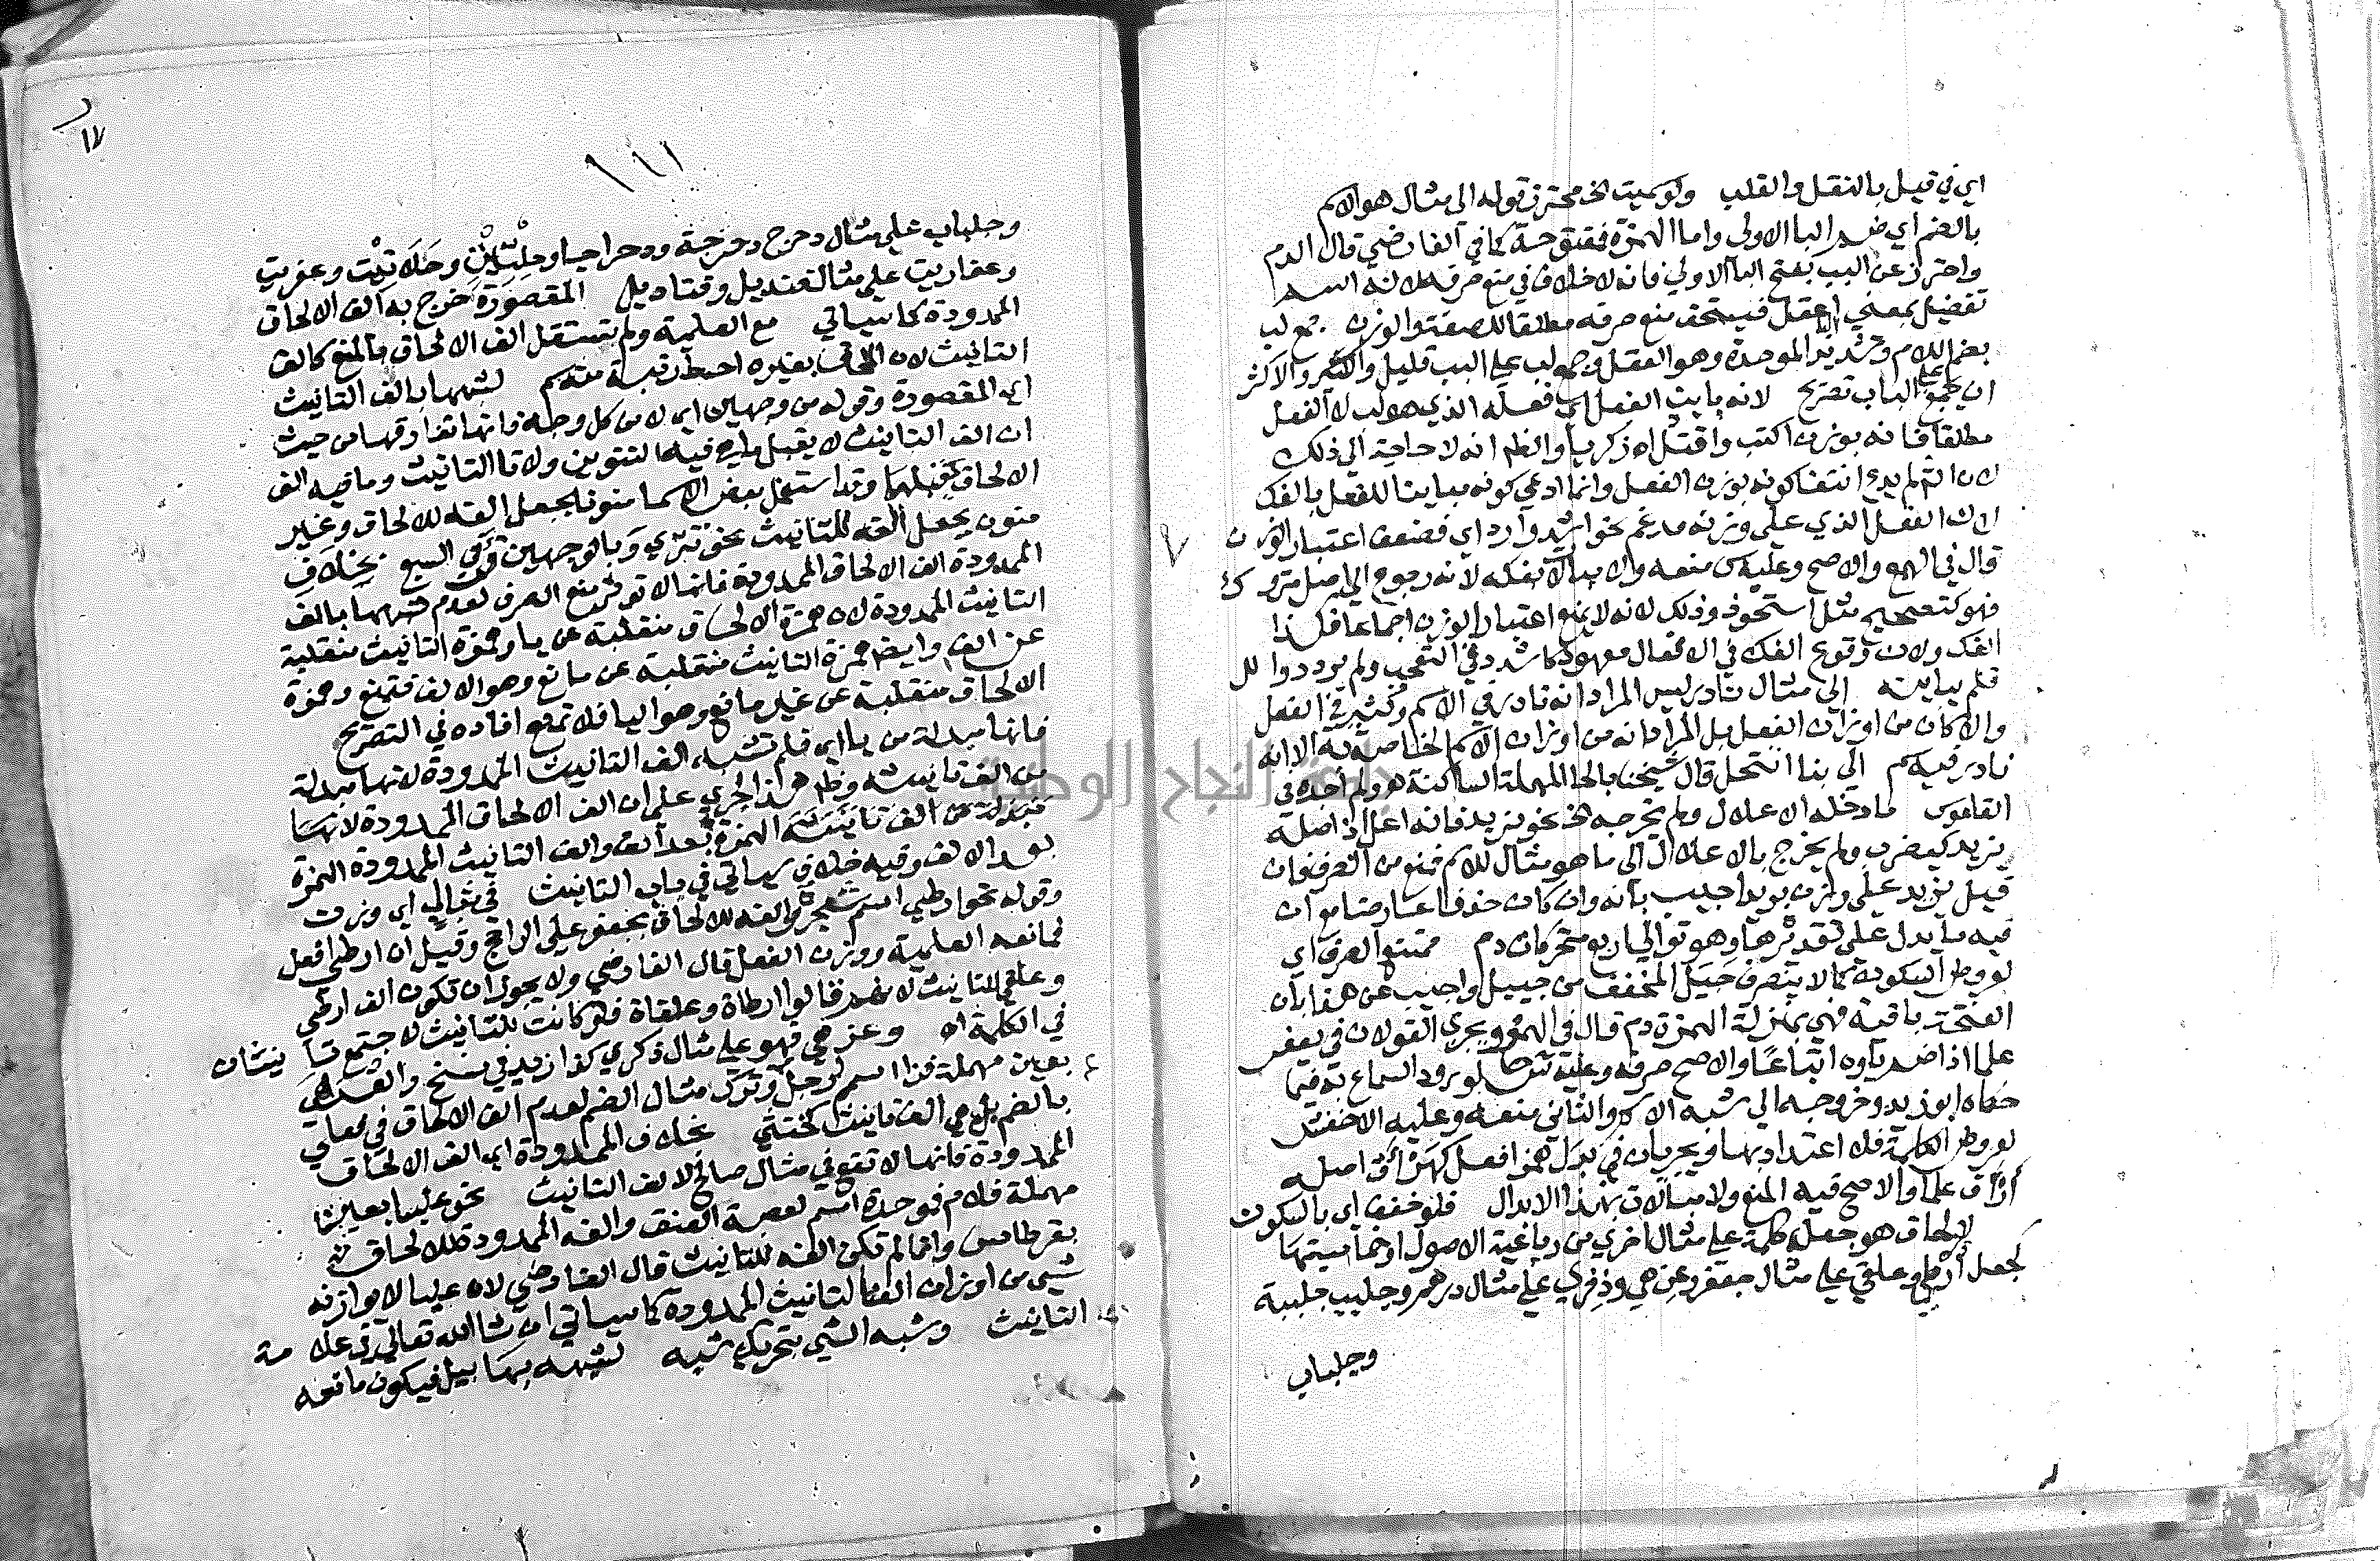 اي في قيل بالنقل والقلب ولو سميت الخ محترز قوله الى مثال هو للاسم
بالضم اي ضم البا الاولى واما الهمزة فمفتوحة كما في الفارضي قال الدم
واحترز عن البب بفتح البا الاولي فانه لا خلاف في منع صرفه لانه اسم
تفضيل بمعني اعقل فيستحق منع صرفه مطلقا للصفة والوزن جمع لب
بضم اللام وتشديد الموحدة وهو العقل وجمع لب على البب قليل والاكثر
ان يجمع على الباب تصريح لانه باين الفعل اي فعله الذي هو لب لا الفعل
مطلقا فانه بوزن اكتب واقتل اه زكريا والظم انه لا حاجة الي ذلك
لان لم يدع انتفا كونه بوزن الفعل وانما ادعي كونه مباينا للفعل بالفك
لان الفعل الذي على وزنه مدغم نحو اشد وارد اي فضعف اعتبار الوزن
قال في الهمع والاصح وعليه س منعه ولا مبالاة بفكه لانه رجوع الي اصل متروك
فهو كتصحيح مثل استحوذ وذلك لانه لا يمنع اعتبار الوزن اجماعا فكذا
الفك ولان وقوع الفك في الافعال معهود كاشدد في التعجب ولم يرددوا لل
فلم يباينه الي مثال نادر ليس المراد انه نادر في الاسم وكثير في الفعل
والا كان من اوزان الفعل بل المراد انه من اوزان الاسم الخاصة به الا انه
نادر فيه الي بنا انتحل قال شيخنا بالحا المهملة الساكنة ولم اجده في
القاموس ما دخله الاعلال ولم يخرجه الخ نحو يزيد فانه اعل اذ اصله
يزيد كيضرب ولم يخرج بالاعلال الى ما هو مثال للاسم فمنع من الصرف فان
قيل يزيد على وزن بريد اجيب بانه وان كان حذفا عارضا مع ان
فيه ما يدل على تقديرها وهو توالي اربع متحركات دم ممتنع الصرف اي
لعروض السكون كما لا ينصرف جيل المخفف من جييل واجيب عن هذا بان
الفتحة باقية فهي بمنزلة الهمزة دم قال في الهمع ويجري القولان في يعفر
علما اذا ضم ياوه اتباعا والاصح صرفه وعليه لورود السماع به فيما
حكاه ابو زيد وخروجه الي شبه الاسم والثاني منعه وعليه الاخفش
لعروض الكلمة فلا اعتداد بها ويجريان في بدل همز افعل كهراق اصله
اراق علما والاصح فيه المنع ولا مبالاة بهذا الابدال فلو خفف اي بالسكون
لالحاق هو جعل كلمة على مثال اخري من رباعية الاصول او خماسيتها
كجعل ارطي وعلقي علي مثال جعفر وعزهي وذفري علي مثال درهم وجلبب جلببة
وجلباب
١١١
١٧
وجلباب علي مثال دحرج دحرجة ودحراجا وحلتيت وحلاتيت وعفريت
وعفاريت علي مثال قنديل وقناديل المقصورة خرج به الف الالحاق
الممدودة كما سياتي مع العلمية ولم تستقل الف الالحاق بالمنع كالف
التانيث لان الملحق بغيره احط رتبة منه سم لشبهها بالف التانيث
اي المقصورة وقوله من وجهين اي لا من كل وجه فانها تفارقها من حيث
ان الف التانيث لا يقبل ما هي فيه التنوين ولا تا التانيث وما فيه الف
الالحاق يقبلهما وقد استعمل بعض الاسما منونا بجعل الفه للالحاق وغير
منون بجعل الفه للتانيث نحو تتري وبالوجهين قري في السبع بخلاف
الممدودة الف الالحاق الممدودة فانها لا تؤثر منع الصرف لعدم شبهها بالف
التانيث الممدودة لان همزة الالحاق منقلبة عن يا وهمزة التانيث منقلبة
عن الف وايضا همزة التانيث منقلبة عن مانع وهو الالف فتمنع وهمزة
الالحاق منقلبة عن غير مانع وهو اليا فلا تمنع افاده في التصريح
فانها مبدلة من يا اي فلم تشبه الف التانيث الممدودة لانها مبدلة
من الف تانيث وظهر هذا الجري على ان الف الالحاق الممدودة لانها
مبدلة من الف تانيث الهمزة بعد الف والف التانيث الممدودة الهمزة
بعد الالف وفيه خلاف سياتي في باب التانيث في مثال اي وزن
وقوله نحو ارطي اسم شجر والفه للالحاق بجعفر علي الراجح وقيل ان ارطي افعل
فمانعه العلمية ووزن الفعل قال الفارضي ولا يجوز ان تكون الف ارطي
وعلقي للتانيث لانهم قالوا ارطاة وعلقاة فلو كانت للتانيث لاجتمع تانيثان
في الكلمة اه وعزهي فهو علي مثال ذكري كذا زيد في نسخ والعزهي
بعين مهملة فزا اسم لرجل وترك مثال الضم لعدم الف الالحاق في فعلي
بالضم بل هي الف تانيث كخنثي بخلاف الممدودة اي الف الالحاق
الممدودة فانها لا تقع في مثال صالح لالف التانيث نحو علبا بعين
مهملة فلام فموحدة اسم لعصبة العنق والفه الممدودة للالحاق
بقرطاس وانما لم تكن الفه للتانيث قال الفارضي لان علبا لا يوازنه
شيء من اوزان الف التانيث الممدودة كما سياتي ان شا الله تعالى في علامة
التانيث وشبه الشي بتحريك شبه لشبهه بهابيل فيكون مانعه
جامعة النجاح الوطنية